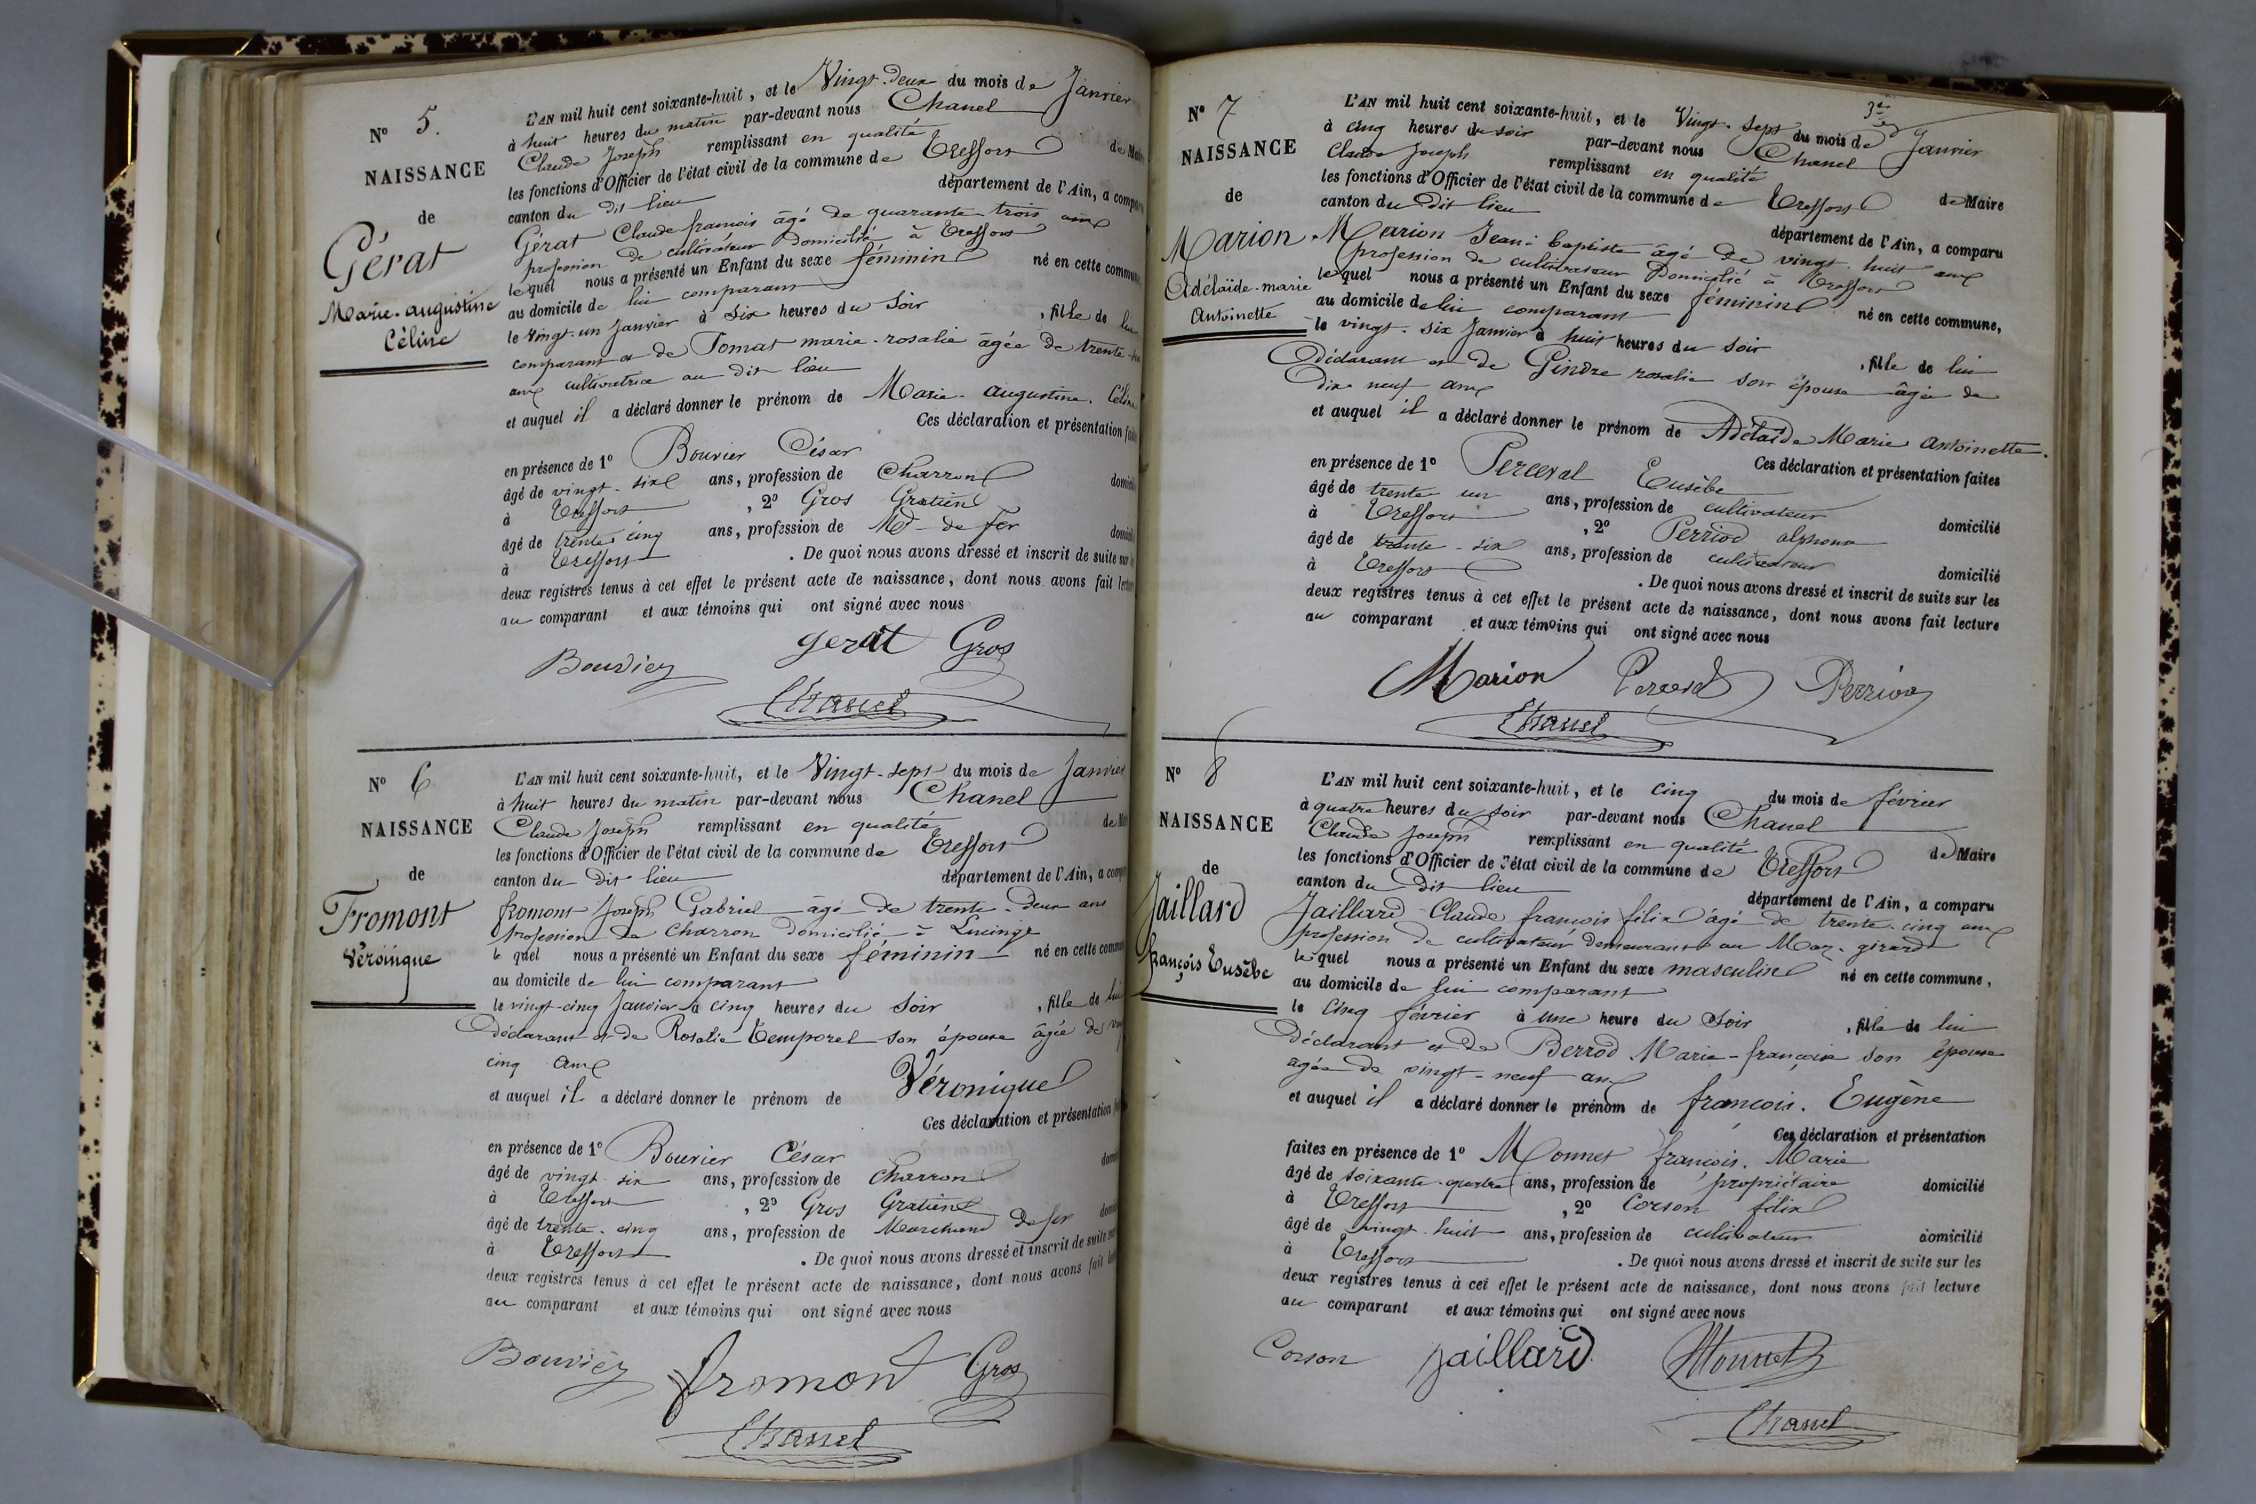 N° 5.
NAISSANCE
de
Gérat
Marie-augustine
Céline
L'AN mil huit cent soixante-huit, et le Vingt-deux du mois de Janvier
à huit heures du matin par-devant nous Chanel
Claude Joseph remplissant en qualité de
les fonctions d'Officier de l'état civil de la commune de Treffort
canton du dit lieu département de l'Ain, a
Gérat Claude françois âgé de quarante trois ans
profession de cultivateur Domicilié à Treffort
lequel nous a présenté un Enfant du sexe féminin né en cette
au domicile de lui comparant
le vingt-un Janvier à Six heures du Soir, fille de lui
comparant et de Tomat marie-rosalie âgée de trente
ans cultivatrice au dit lieu
et auquel il a déclaré donner le prénom de Marie-augustine. Céline
Ces déclaration et présentation
en présence de 1° Bouvier César
âgé de vingt-six ans, profession de Charron
à Treffort, 2° Gros Gratien
âgé de trente cinq ans, profession de Md de Fer
à Treffort. De quoi nous avons dressé et inscrit de suite sur
deux registres tenus à cet effet le présent acte de naissance, dont nous avons fait
au comparant et aux témoins qui ont signé avec nous
Bouvier gerat Gros
Chanel
N° 6
NAISSANCE
de
Fromont
Véroinque
L'AN mil huit cent soixante-huit, et le Vingt-sept du mois de Janvier
à huit heures du matin par-devant nous Chanel
Claude Joseph remplissant en qualité de
les fonctions d'Officier de l'état civil de la commune de Treffort
canton du dit lieu département de l'Ain, a
fromont Joseph Gabriel âgé de trente-deux ans
profession de Charron domicilié à
le quel nous a présenté un Enfant du sexe féminin né en cette
au domicile de lui comparant
le vingt-cinq Janvier à cinq heures du Soir, fille de lui
déclarant et de Rosalie Temporel son épouse âgée de
cinq ans
et auquel il a déclaré donner le prénom de Véronique
Ces déclaration et présentation
en présence de 1° Bouvier César
âgé de vingt-six ans, profession de Charron
à Treffort, 2° Gros Gratien
âgé de trente-cinq ans, profession de Marchand de fer
à Treffort. De quoi nous avons dressé et inscrit de suite sur
deux registres tenus à cet effet le présent acte de naissance, dont nous avons fait
au comparant et aux témoins qui ont signé avec nous
Bouvier fromont Gros
Chanel
N° 7
NAISSANCE
de
Marion
Adélaïde-marie
Antoinette
L'AN mil huit cent soixante-huit, et le Vingt-sept du mois de Janvier
à cinq heures du soir par-devant nous Chanel
Claude Joseph remplissant en qualité de Maire
les fonctions d'Officier de l'état civil de la commune de Treffort
canton du dit lieu département de l'Ain, a comparu
Marion Jean-baptiste âgé de vingt-huit ans
profession de cultivateur Domicilié à Treffort
lequel nous a présenté un Enfant du sexe féminin né en cette commune,
au domicile de lui comparant
le vingt-six Janvier à huit heures du soir, fille de lui
Déclarant et de Gindre rosalie son épouse âgée de
dix-neuf ans
et auquel il a déclaré donner le prénom de Adélaïde Marie antoinette.
Ces déclaration et présentation faites
en présence de 1° Perceval Eusèbe
âgé de trente un ans, profession de cultivateur domicilié
à Treffort, 2° Perriod alphonse
âgé de trente-six ans, profession de cultivateur domicilié
à Treffort. De quoi nous avons dressé et inscrit de suite sur les
deux registres tenus à cet effet le présent acte de naissance, dont nous avons fait lecture
au comparant et aux témoins qui ont signé avec nous
Marion Perceval Perriod
Chanel
N° 8
NAISSANCE
de
Jaillard
françois Eusèbe
L'AN mil huit cent soixante-huit, et le cinq du mois de février
à quatre heures du soir par-devant nous Chanel
Claude Joseph remplissant en qualité de Maire
les fonctions d'Officier de l'état civil de la commune de Treffort
canton du dit lieu département de l'Ain, a comparu
Jaillard Claude françois félix âgé de trente-cinq ans
profession de cultivateur demeurant au Maz-girard
lequel nous a présenté un Enfant du sexe masculin né en cette commune,
au domicile de lui comparant
le cinq février à une heure du Soir, fils de lui
déclarant et de Berrod Marie-françoise son épouse
âgée de vingt-neuf ans
et auquel il a déclaré donner le prénom de françois. Eugène
Ces déclaration et présentation
faites en présence de 1° Monnet françois. Marie
âgé de soixante-quatre ans, profession de propriétaire domicilié
à Treffort, 2° Corson félix
âgé de vingt-huit ans, profession de cultivateur domicilié
à Treffort. De quoi nous avons dressé et inscrit de suite sur les
deux registres tenus à cet effet le présent acte de naissance, dont nous avons fait lecture
au comparant et aux témoins qui ont signé avec nous
Corson Jaillard Monnet
Chanel